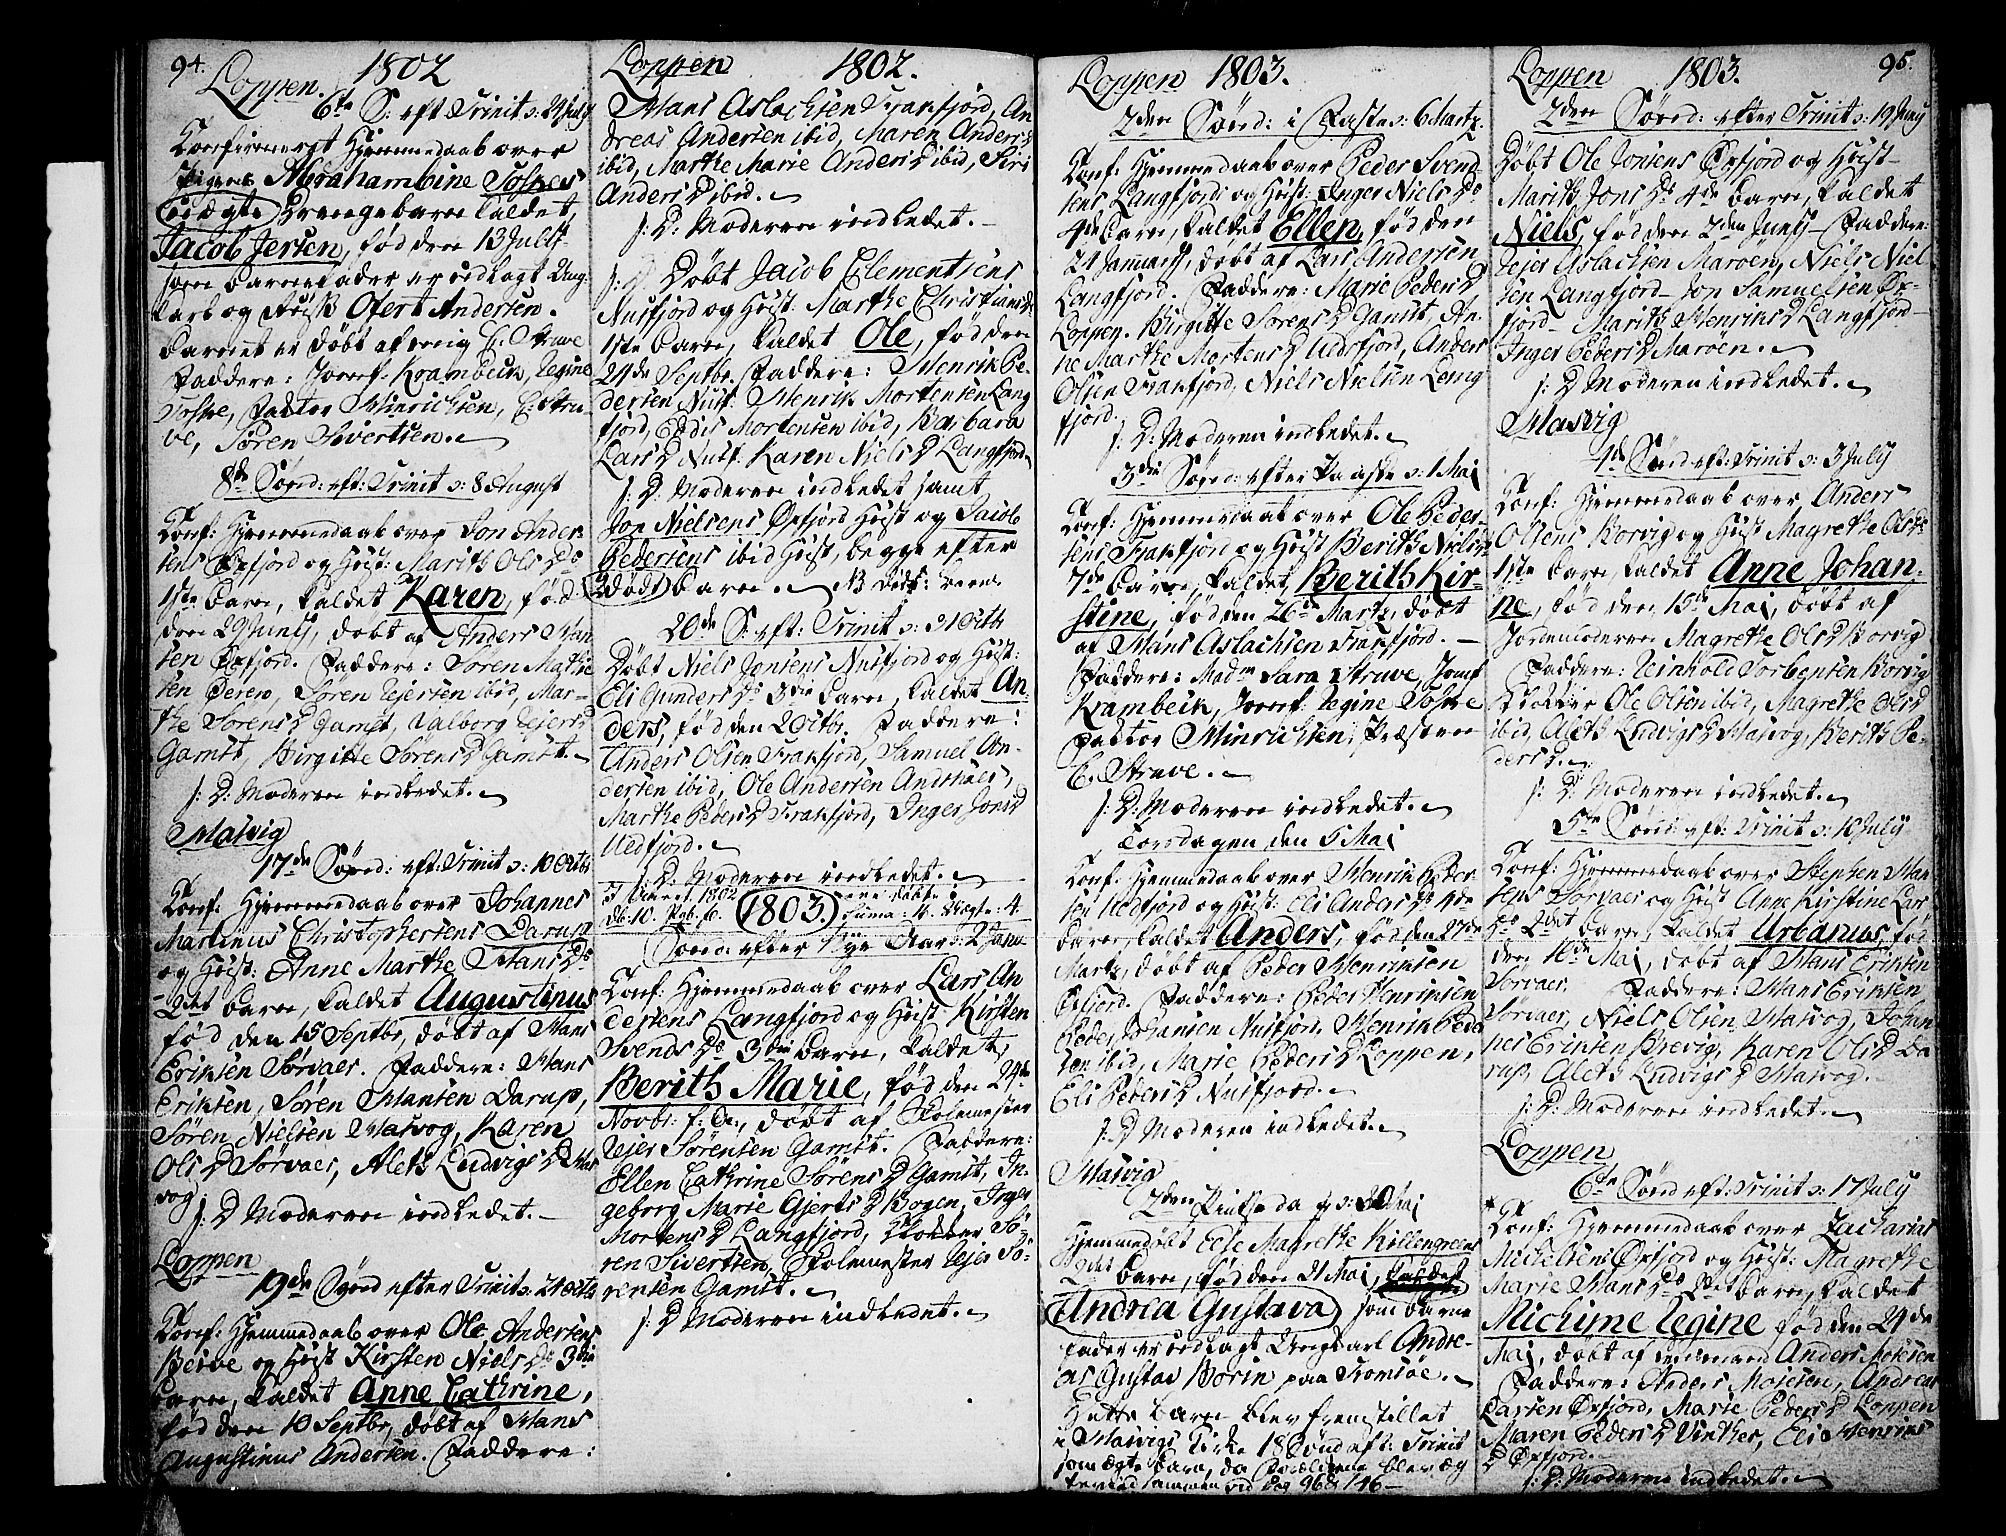 94.
Loppen. 1802
6te S: eft Trinit s: 24 July
Confirmeret Hjemmedaab over
Pigen Abrahamine Foskes
uægte Drengebarn kaldet,
Jacob Jersen, fød den 13 July
som Barnefader er udlagt Ung-
karl og Friisk Ofert Andersen.
Barnet er døbt af mig E. Struve
Faddere: Jomf: Krambeck, Regine
Foske, Factor Hinrichsen, E: Stru-
ve, Søren Sivertsen.
8de Sønd: eft: Trinit s: 8 August
Conf: Hjemmedaab over Jon Ander-
sens Øxfjord og Hust: Marith Ols Ds
1ste Barn, kaldet Karen, fød
den 29 Juny, døbt af Anders Han-
sen Øxfjord. Faddere: Søren Mathie
sen Bereen, Søren Rejersen ibid, Mar-
the Sørens D Gamst, Valborg Rejers D
Gamst, Birgitte Sørens D Gamst.
s: D: Moderen indledet.
Hasvig
17de Sønd: eft: Trinit s: 10 Octb
Conf: Hjemmedaab over Johannes
Martinus Christophersens Darup
og Hust: Anne Marthe Hans Ds
2det Barn, kaldet Augustinus
fød den 15 Septbr, døbt af Hans
Eriksen Sørvaer. Faddere: Hans
Eriksen, Søren Hansen Darup,
Søren Nielsen Hasvog, Karen
Ols D Sørvaer, Aleth Ludvigs D Has
vog
s: D Moderen indledet.
Loppen
19de Sønd efter Trinit s: 24 Octb
Conf: Hjemmedaab over Ole Andersens
Beive og Hust Kirsten Niels Ds 3die
Barn, kaldet Anne Cathrine,
fød den 10 Septbr, døbt af Hans
Augustinus Andersen. Faddere:
Loppen 1802.
Hans Aslachsen Frakfjord, An
dreas Andersen ibid, Maren Anders D
ibid, Marthe Marie Anders D ibid, Siri
Anders D ibid.
s: D: Moderen indledet.
s: D: Døbt Jacob Clementsens
Nusfjord og Hust: Marthe Christians Ds
1ste Barn, kaldet Ole, fød den
24de Septbr. Faddere: Henrik Pe-
dersen Nusf: Henrik Mortensen Lang
fjord, Endis Mortensen ibid, Barbara
Lars D Nusf: Karen Niels D Langfjord
s: D: Moderen indledet samt
Jon Nielsens Øxfjord Hust og Jacob
Pedersens ibid Hust, begge efter
2 død Barn.
20de S: eft: Trinit s: 31 Octb
Døbt Niels Jonsens Nusfjord og Hust:
Eli Gunders Ds 3die Barn, kaldet An-
ders, fød den 2 Octbr. Faddere:
Anders Olsen Frakfjord, Samuel An-
dersen ibid, Ole Andersen Andsnaes,
Marthe Peders D Frakfjord, Inger Jons D
Uedfjord.
s: D: Moderen indledet.
I Aaret 1802
db: 10. 1803 Suma: 4. Uægte: 4
Sønd: efter Nye Aar s: 2 Janu
Conf: Hjemmedaab over Lars An
dersens Langfjord og Hust Kirsten
Svends Ds 3die Barn, kaldet,
Berith Marie, fød den 24de
Novbr: f: A:, døbt af Skolemester
Rejer Sørensen Gamst. Faddere:
Ellen Cathrine Sørens D Gamst, In-
geborg Marie Gjerts D Bogen, Inger
Mortens D Langfjord, Sø-
ren Sivertsen, Skolemester Rejer Sø-
rensen Gamst.
s: D Moderen indledet.
Loppen 1803.
2den Sønd: i Faste s: 6 Martz
Conf: Hjemmedaab over Peder Svend
sens Langfjord og Hust: Inger Niels Ds
4de Barn, kaldet Ellen, fød den
24 Januarj, døbt af Lars Andersen
Langfjord. Faddere: Marie Peders D
Loppen. Birgitte Sørens D Gamst, An-
ne Marthe Mortens D Uedsfjord, Anders
Olsen Frakfjord, Niels Nielsen Lang
fjord.
s: D: Moderen indledet.
3die Sønd: efter Paaske s: 1 Maj
Conf: Hjemmedaab over Ole Peder-
sens Frakfjord og Hust Berith Niels Ds
7de Barn, kaldet, Berith Kir-
stine, fød den 26de Martz, døbt
af Hans Aslachsen Frakfjord.
Faddere: Madm Sara Struve, Jomf
Krambeck, Jomf: Regine Foske
Factor Hinrichsen, Præsten
E. Struve.
s: D: Moderen indledet.
Torsdagen den 5 Maj
Conf: Hjemmedaab over Henrik Peder
sen Uedfjord og Hust: Eli Anders Ds 4de
Barn, kaldet Anders, fød den 27de
Martz, døbt af Peder Henriksen
Øxfjord. Faddere: Peder Henriksen
Peder Johansen Nusfjord, Henrik Peder
sen ibid, Marie Peders D Loppen,
Eli Peders D Nusfjord.
s: D Moderen indledet.
Hasvig
2den Pintsedag s: 30 Maj
Hjemmedøbt Else Magrethe Killengreens
2det Barn, fød den 21 Maj, kaldet
Andrea Gustava som Barne
fader er udlagt Ungkarl Andre-
as Gustav Borin paa Tromsøe.
Dette Barn blev fremstillet
i Hasvigs Kirke 18 Søndaf: Trinit
som ægte Barn, da Forældrene blev æg
teviid sammen vid Pag 96 & 146
Loppen 1803. 95.
2den Sønd: efter Trinit s: 19 Juny
Døbt Ole Jonsens Øxfjord og Hust-
Marith Jons Ds 4de Barn, kaldet
Niels, fød den 2den Juny- Faddere:
Rejer Aslachsen Marøen, Niels Niel
sen Langfjord- Jon Samuelsen Øx-
fjord- Marith Henriks D Langfjord-
Inger Peders D Marøen.
s: D Moderen indledet.
Hasvig
4de Sønd eft: Trinit s: 3 July
Conf: Hjemmedaab over Anders
Olsens Borvig og Hust Magrethe Ols Ds
1ste Barn, kaldet Anne Johan-
ne, fød den 15de Maj, døbt af
Jordemoderen Magrethe Ols D Borvig
Faddere: Reinhold Torbensen Borvig
Ole Olsen ibid, Magrethe Ols D
ibid, Aleth Ludvigs D Hasvog, Berith Pe-
ders D.
s: D: Moderen indledet.
5te Sønd: eft: Trinit s: 10 July
Conf: Hjemmedaab over Stephen Han
sens Sørvaer og Hust Anne Kirstine Lars
Ds 2det Barn, kaldet Urbanus, fød
den 16de Maj, døbt af Hans Eriksen
Sørvaer. Faddere: Hans Eriksen
Sørvaer, Niels Olsen Hasvog, Johan
nes Eriksen Brevig, Karen Ols D Da
rup, Aleth Ludvigs D Hasvog.
s: D: Moderen indledet.
Loppen
6te Sønd eft: Trinit s: 17 July
Conf: Hjemmedaab over Zacharias
Michelsens Øxfjord og Hust: Magrethe
Marie Hans Ds Barn, kaldet
Michime Regine fød den 24de
Maj, døbt af Anders Mosesen
Faddere: Anders Mosesen, Andreas
Larsen Øxfjord, Marie Peders D Loppen
Maren Peders D Vinther, Eli Henriks
D Øxfjord.
s: D: Moderen indledet.